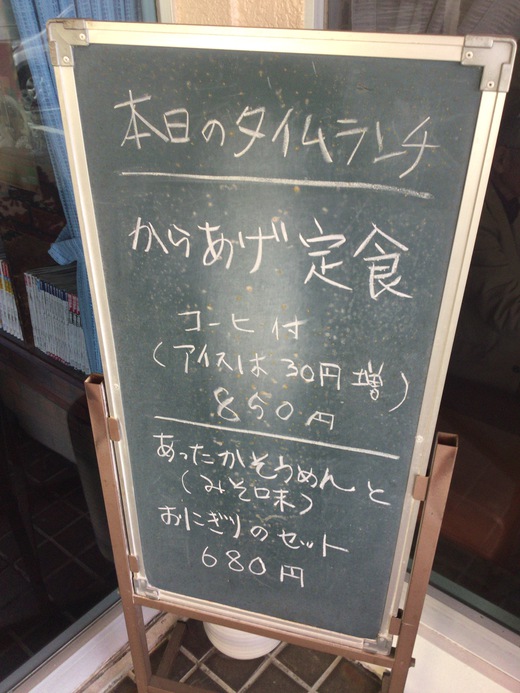 本日のタイムランチ
からあげ定食
コーヒ付
(アイスは30円増)
850円
あったかそうめんと
(みそ味)
おにぎりのセット
680円